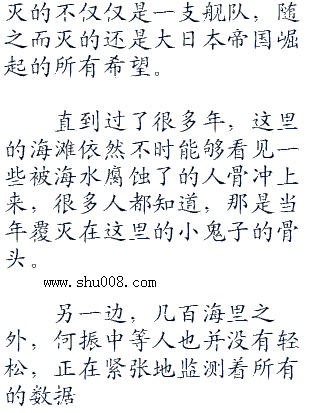 灭的不仅仅是一支舰队，随
之而灭的还是大日本帝国崛
起的所有希望。
直到过了很多年，这里
的海滩依然不时能够看见一
些被海水腐蚀了的人骨冲上
来，很多人都知道，那是当
年覆灭在这里的小鬼子的骨
头。
www.shu008.com
另一边，几百海里之
外，何振中等人也并没有轻
松，正在紧张地监测着所有
的数据